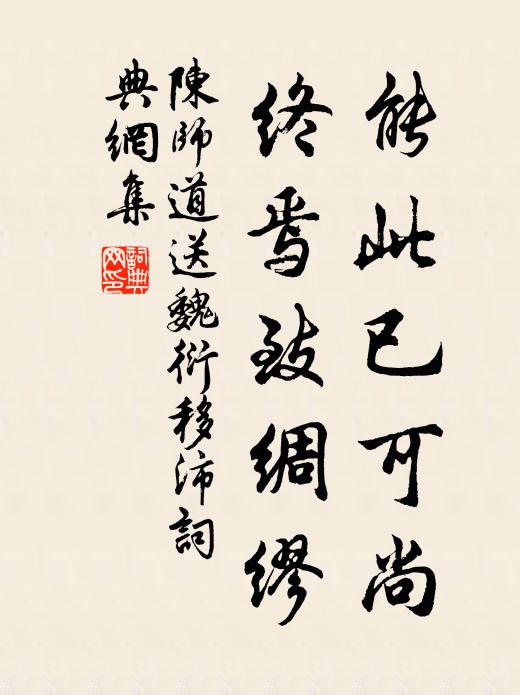 能此已可尚
终焉致绸缪
陳師道送魏衍移沛詞
典網集
詞典網印